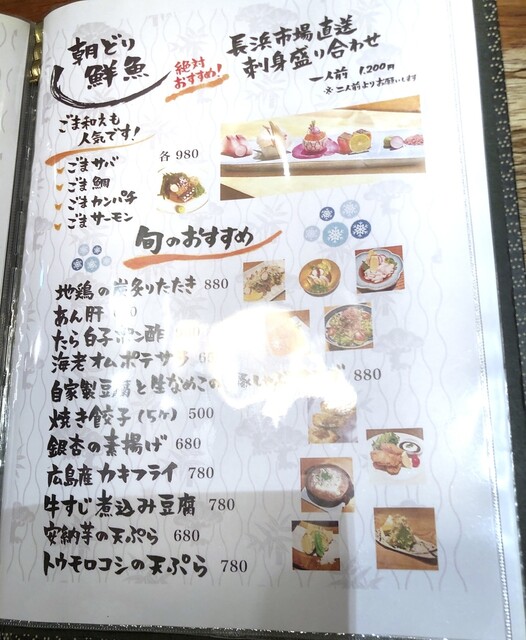 朝どり
鮮魚
絶対
おすすめ!
長浜市場直送
刺身盛り合わせ
一人前 1,200円
※二人前よりお願いします
ごま和えも
人気です!
各980
ごまサバ
ごま鯛
ごまカンパチ
ごまサーモン
旬のおすすめ
地鶏の炭炙りたたき 880
あん肝
たら白子ポン酢
海老オムポテサラ
自家製豆腐と生なめこの 880
焼き餃子(5ケ) 500
銀杏の素揚げ 680
広島産カキフライ 780
牛すじ煮込み豆腐 780
安納芋の天ぷら 680
トウモロコシの天ぷら 780